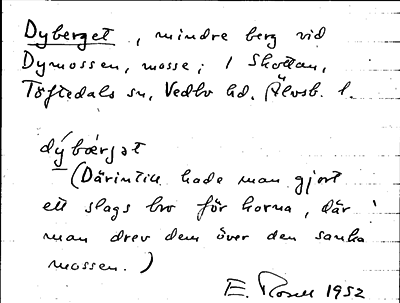 Dyberget, mindre berg vid
Dymossen, mosse; i Skottan,
Töftedals sn, Vedbo hd. Älvsb. l.
dýbærjət
(Därintill hade man gjort
ett slags bro för korna, där
man drev dem över den sanka
mossen.)
E. 1952